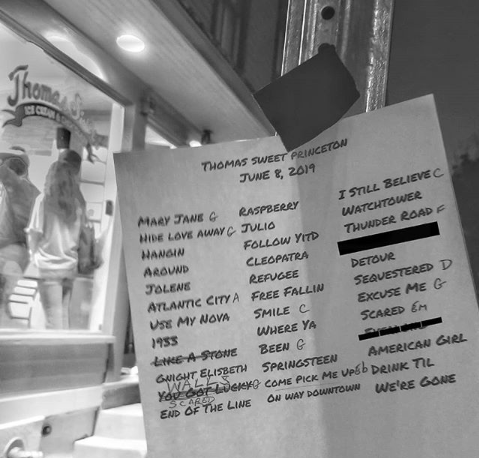 Thomas Sweet
ICE CREAM &
THOMAS SWEET PRINCETON
JUNE 8, 2019
MARY JANE G
HIDE LOVE AWAY G
HANGIN
AROUND
JOLENE
ATLANTIC CITY A
USE MY NOVA
1983
LIKE A STONE
GNIGHT ELISBETH
WALLS
YOU GOT LUCKY G
SCARED
END OF THE LINE
RASPBERRY
JULIO
FOLLOW YITD
CLEOPATRA
REFUGEE
FREE FALLIN
SMILE C
WHERE YA
BEEN G
SPRINGSTEEN
COME PICK ME UP Gb
ON WAY DOWNTOWN
I STILL BELIEVE C
WATCHTOWER
THUNDER ROAD F
DETOUR
SEQUESTERED D
EXCUSE ME G
SCARED Em
AMERICAN GIRL
DRINK TIL
WE'RE GONE